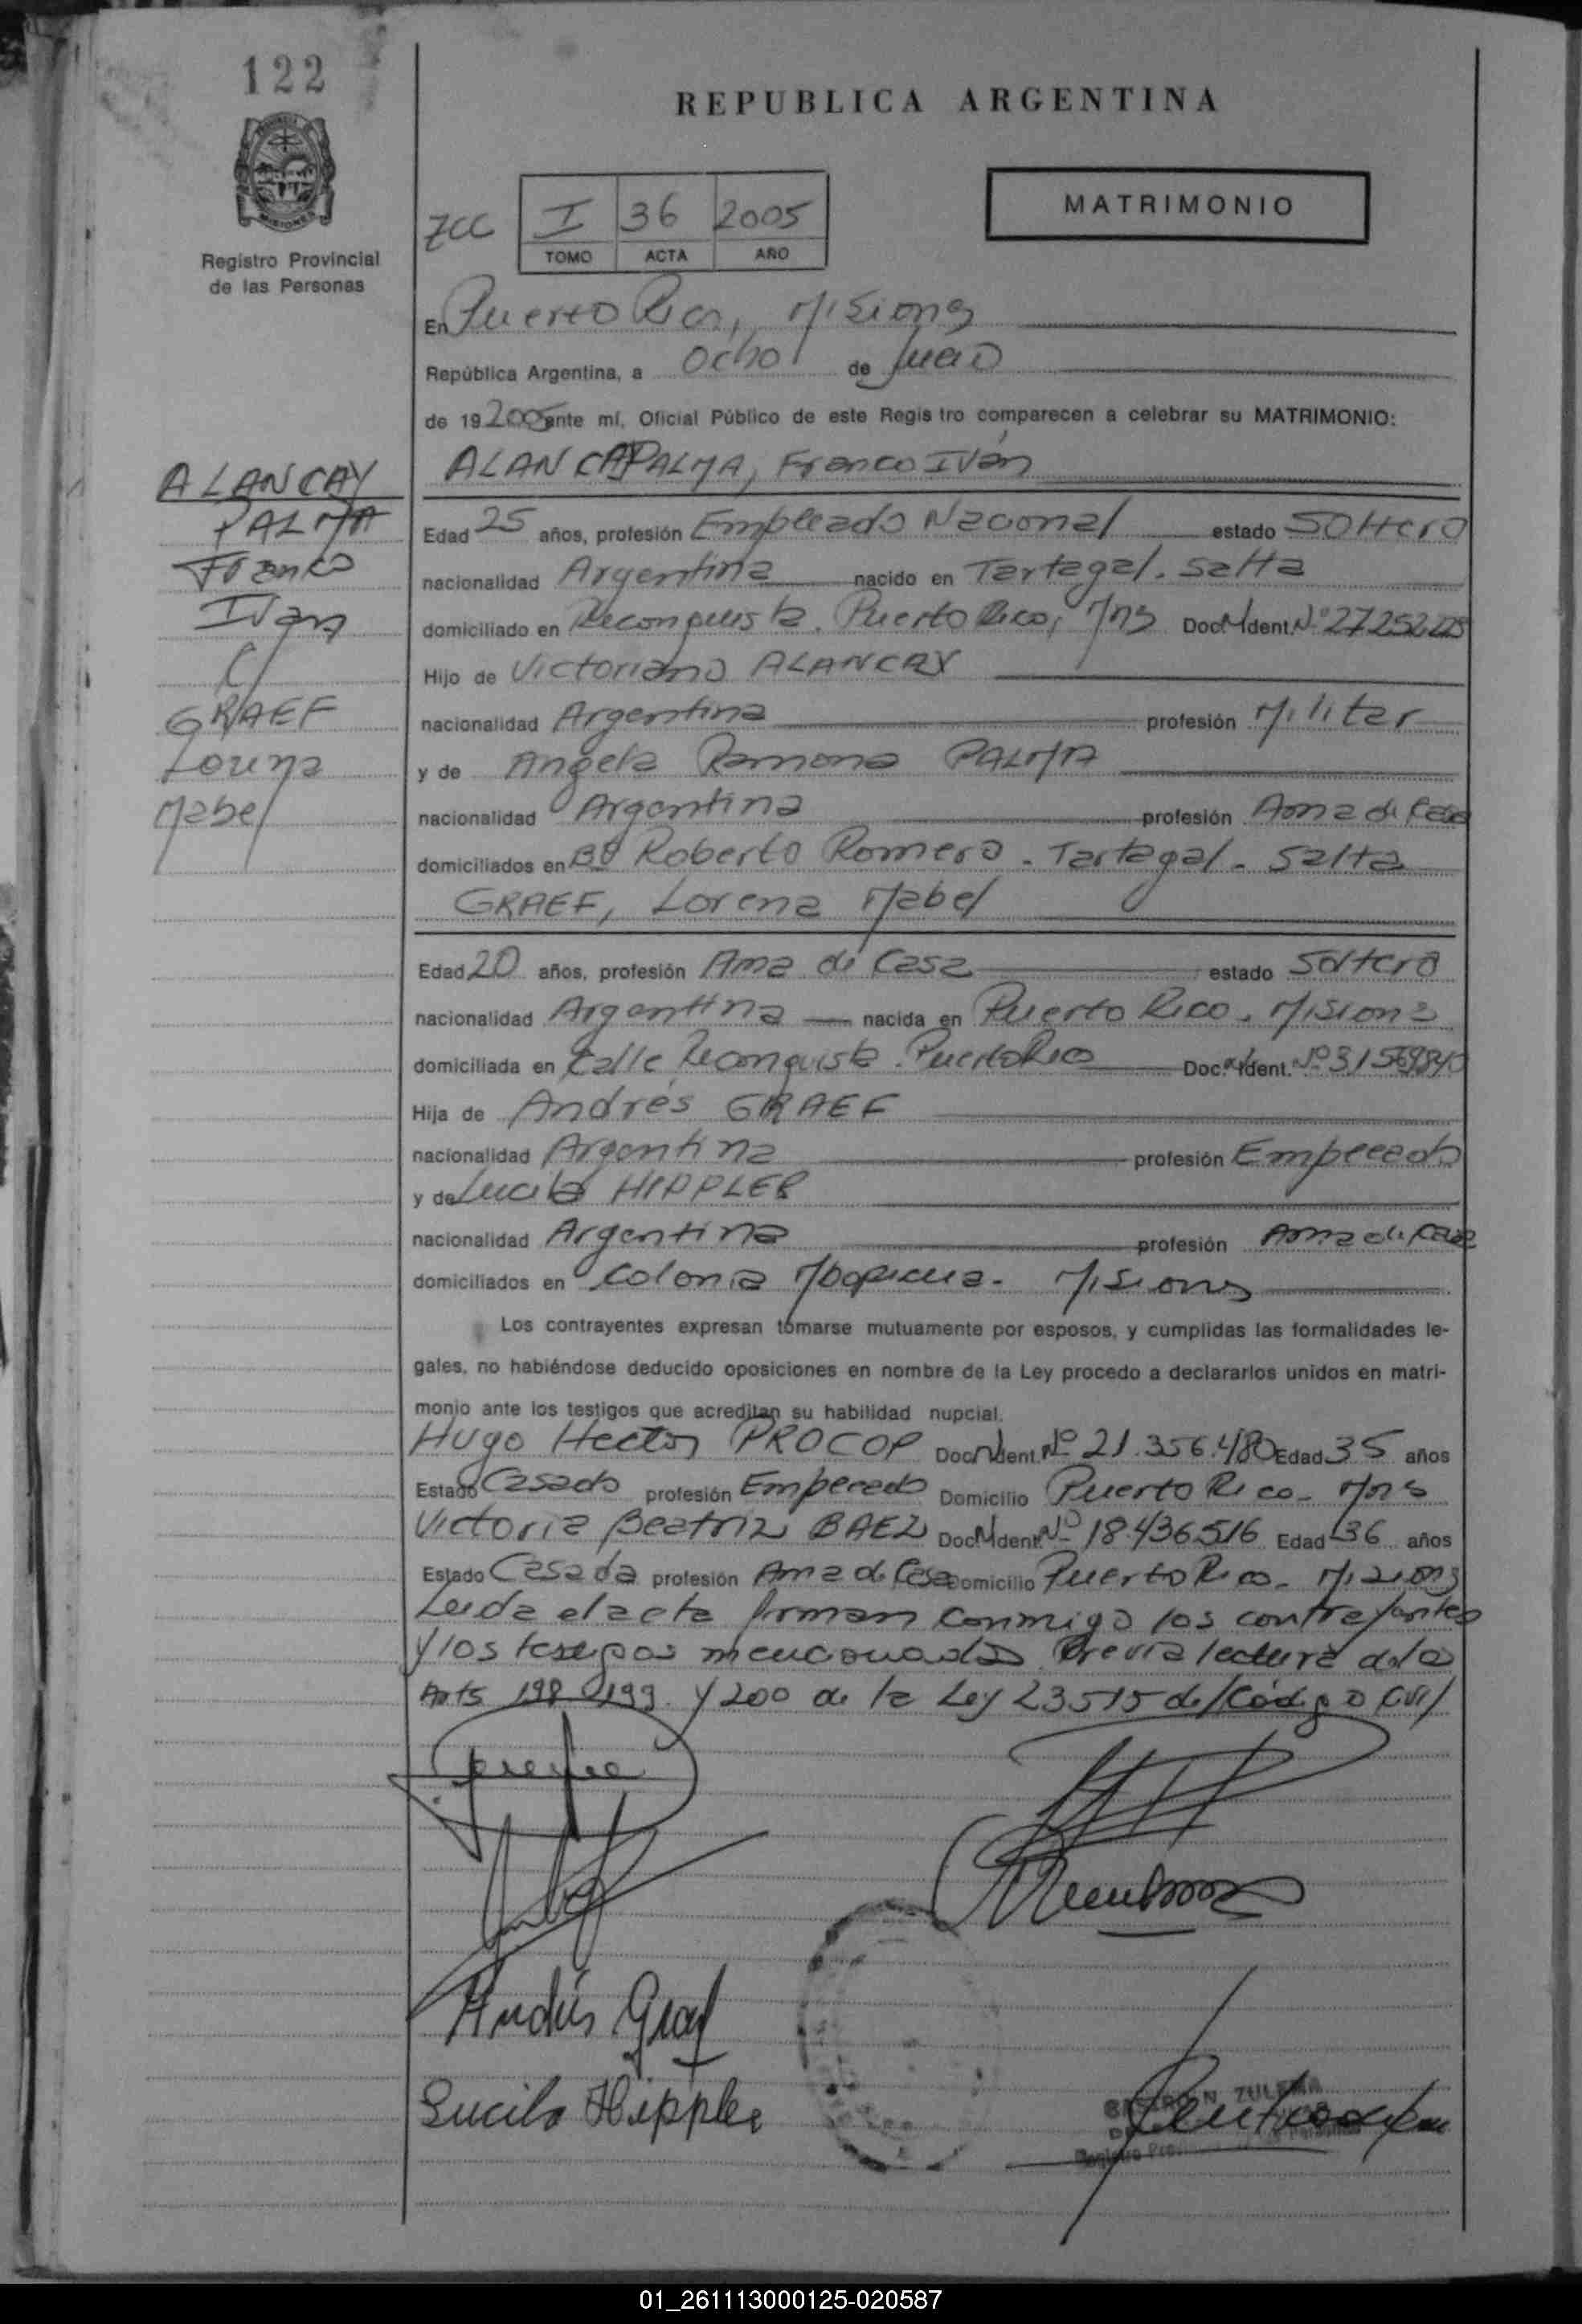 122
REPUBLICA ARGENTINA
MATRIMONIO
Registro Provincial
de las Personas
ZCC I 36 2005
TOMO ACTA AÑO
En Puerto Rico, Misiones
República Argentina, a Ocho de Julio
de 19 2005 ante mí, Oficial Público de este Registro comparecen a celebrar su MATRIMONIO:
ALANCAY PALMA, Franco Iván
ALANCAY
PALMA
Franco
Ivan
c/
GRAEF
Lorena
Mabel
Edad 25 años, profesión Empleado Nacional estado Soltero
nacionalidad Argentina nacido en Tartagal. Salta
domiciliado en Reconquista. Puerto Rico, Mns Doc. Ident. Nº 27252225
Hijo de Victoriano ALANCAY
nacionalidad Argentina profesión Militar
y de Angela Ramona PALMA
nacionalidad Argentina profesión Ama de Casa
domiciliados en Bº Roberto Romero - Tartagal - Salta
GRAEF, Lorena Mabel
Edad 20 años, profesión Ama de Casa estado Soltera
nacionalidad Argentina nacida en Puerto Rico. Misiones
domiciliada en Calle Reconquista. Puerto Rico Doc. Ident. Nº
Hija de Andrés GRAEF
nacionalidad Argentina profesión Empleado
y de Lucila HIPPLER
nacionalidad Argentina profesión Ama de Casa
domiciliados en Colonia Mbopicua - Misiones
Los contrayentes expresan tomarse mutuamente por esposos, y cumplidas las formalidades le-
gales, no habiéndose deducido oposiciones en nombre de la Ley procedo a declararlos unidos en matri-
monio ante los testigos que acreditan su habilidad nupcial.
Hugo Hector PROCOP Doc. Ident. Nº 21.356.480 Edad 35 años
Estado Casado profesión Empleado Domicilio Puerto Rico - Mns
Victoria Beatriz BAEZ Doc. Ident. Nº 18.436516 Edad 36 años
Estado Casada profesión Ama de Casa Domicilio Puerto Rico - Misiones
Leida el acta firman conmigo los contrayentes
y los testigos mencionados. Previa lectura de los
Arts 198 199 y 200 de la Ley 23515 del Código Civil
Andrés Graef
Lucila Hippler
ZULEMA
01_261113000125-020587